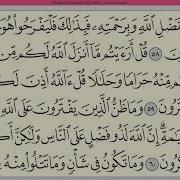 فَضْلِ ٱللَّهِ وَبِرَحْمَتِهِۦ فَبِذَٰلِكَ فَلْيَفْرَحُوا۟ هُوَ
٥٨ قُلْ أَرَءَيْتُم مَّآ أَنزَلَ ٱللَّهُ لَكُم مِّن
مِّنْهُ حَرَامًا وَحَلَٰلًا قُلْ ءَآللَّهُ أَذِنَ لَكُمْ
تَرُونَ ٥٩ وَمَا ظَنُّ ٱلَّذِينَ يَفْتَرُونَ
يَٰمَةِ إِنَّ ٱللَّهَ لَذُو فَضْلٍ عَلَى ٱلنَّاسِ وَلَٰكِنَّ
كُرُونَ ٦٠ وَمَا تَكُونُ فِى شَأْنٍ وَمَا تَتْلُوا۟ مِنْهُ